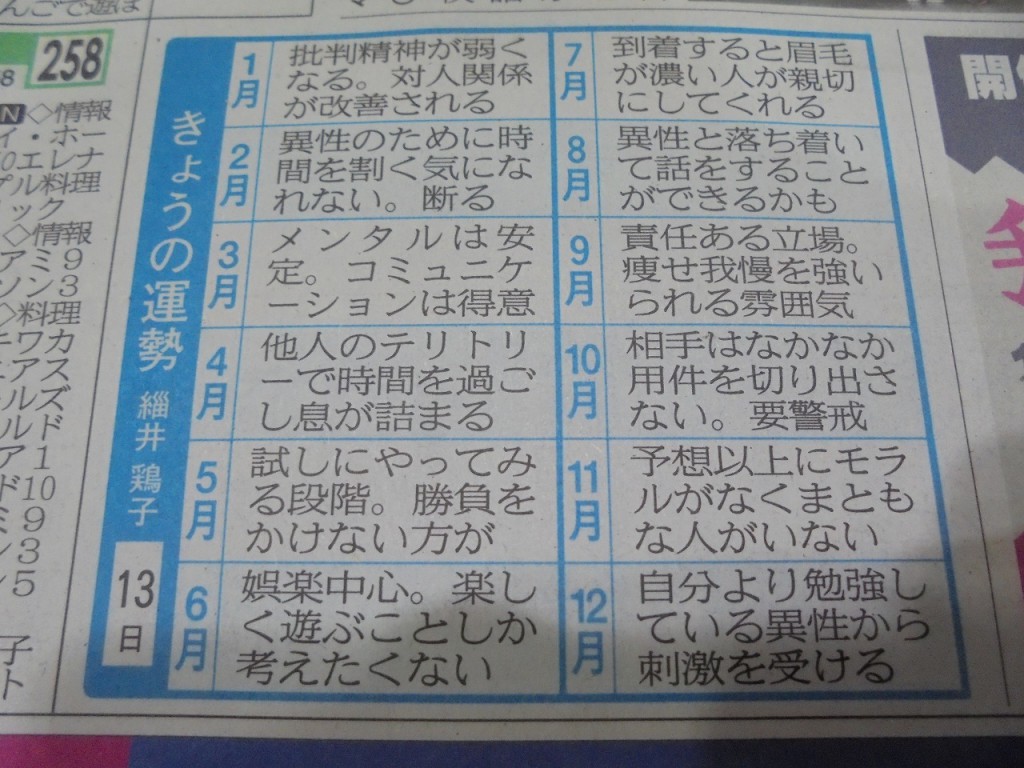 きょうの運勢
緇井 鶏子
13日
1月
批判精神が弱く
なる。対人関係
が改善される
2月
異性のために時
間を割く気にな
れない。断る
3月
メンタルは安
定。コミュニケ
ーションは得意
4月
他人のテリトリ
ーで時間を過ご
し息が詰まる
5月
試しにやってみ
る段階。勝負を
かけない方が
6月
娯楽中心。楽し
く遊ぶことしか
考えたくない
7月
到着すると眉毛
が濃い人が親切
にしてくれる
8月
異性と落ち着い
て話をすること
ができるかも
9月
責任ある立場。
痩せ我慢を強い
られる雰囲気
10月
相手はなかなか
用件を切り出さ
ない。要警戒
11月
予想以上にモラ
ルがなくまとも
な人がいない
12月
自分より勉強し
ている異性から
刺激を受ける
258
◇情報
イ・ホー
エレナ
料理
◇情報
◇料理